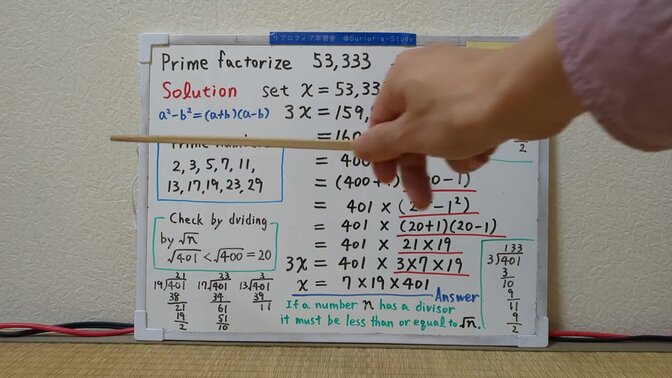 ケアロフィア学習室 @Surlofia-Study
Prime factorize 53,333
Solution set x = 53,33
a²-b²=(a+b)(a-b) 3x = 159,
= 160
= 400
2, 3, 5, 7, 11,
13, 17, 19, 23, 29
= (400+1)(400-1)
= 401 × (20²-1²)
= 401 × (20+1)(20-1)
= 401 × 21×19
3x = 401 × 3×7×19
x = 7×19×401
Answer
Check by dviding
by √n
√401 < √400 = 20
21
19√401
38
21
19
2
23
17√401
34
61
51
10
3
13√401
39
11
If a number n has a divisor
it must be less than or equal to √n.
133
3√401
3
10
9
11
9
2
2